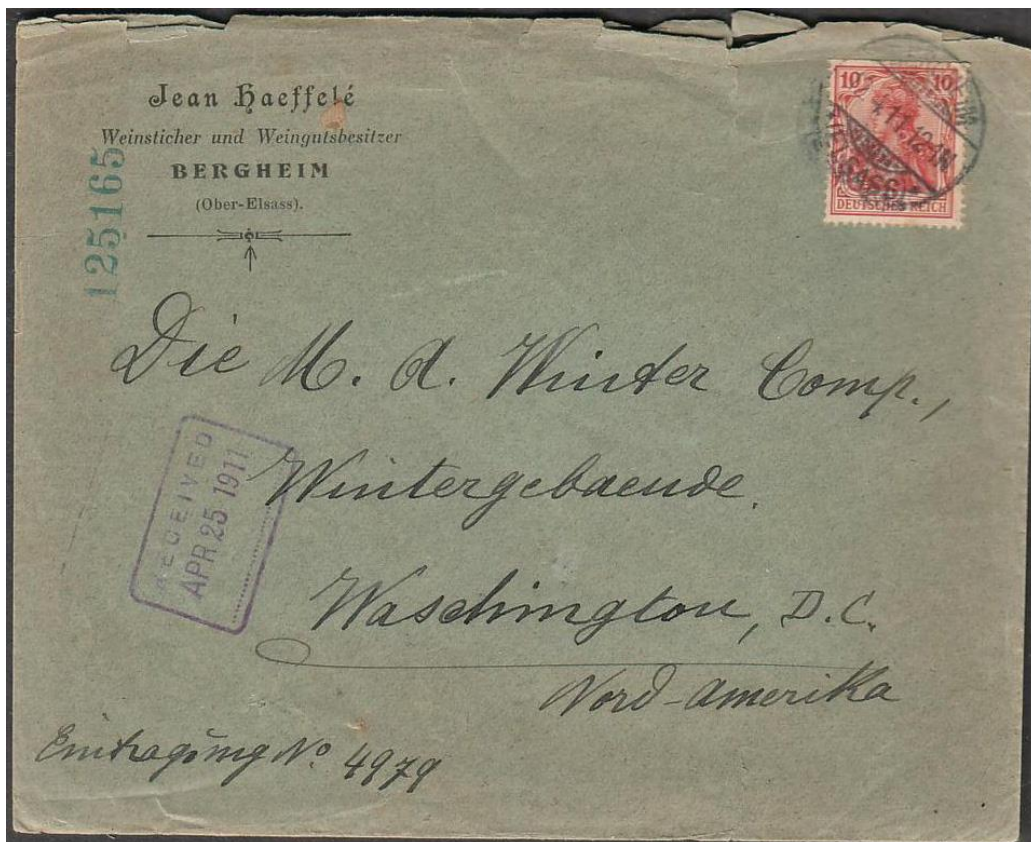 Jean Haeffelé
Weinsticher und Weingutsbesitzer
BERGHEIM
(Ober-Elsass).
125165
10 10
DEUTSCHES REICH
11.12-1N
ELSASS
Die M. A. Winter Comp.,
Wintergebaeude.
Waschington, D.C.
Nord-Amerika
RECEIVED
APR 25 1911
Eintragung No. 4979